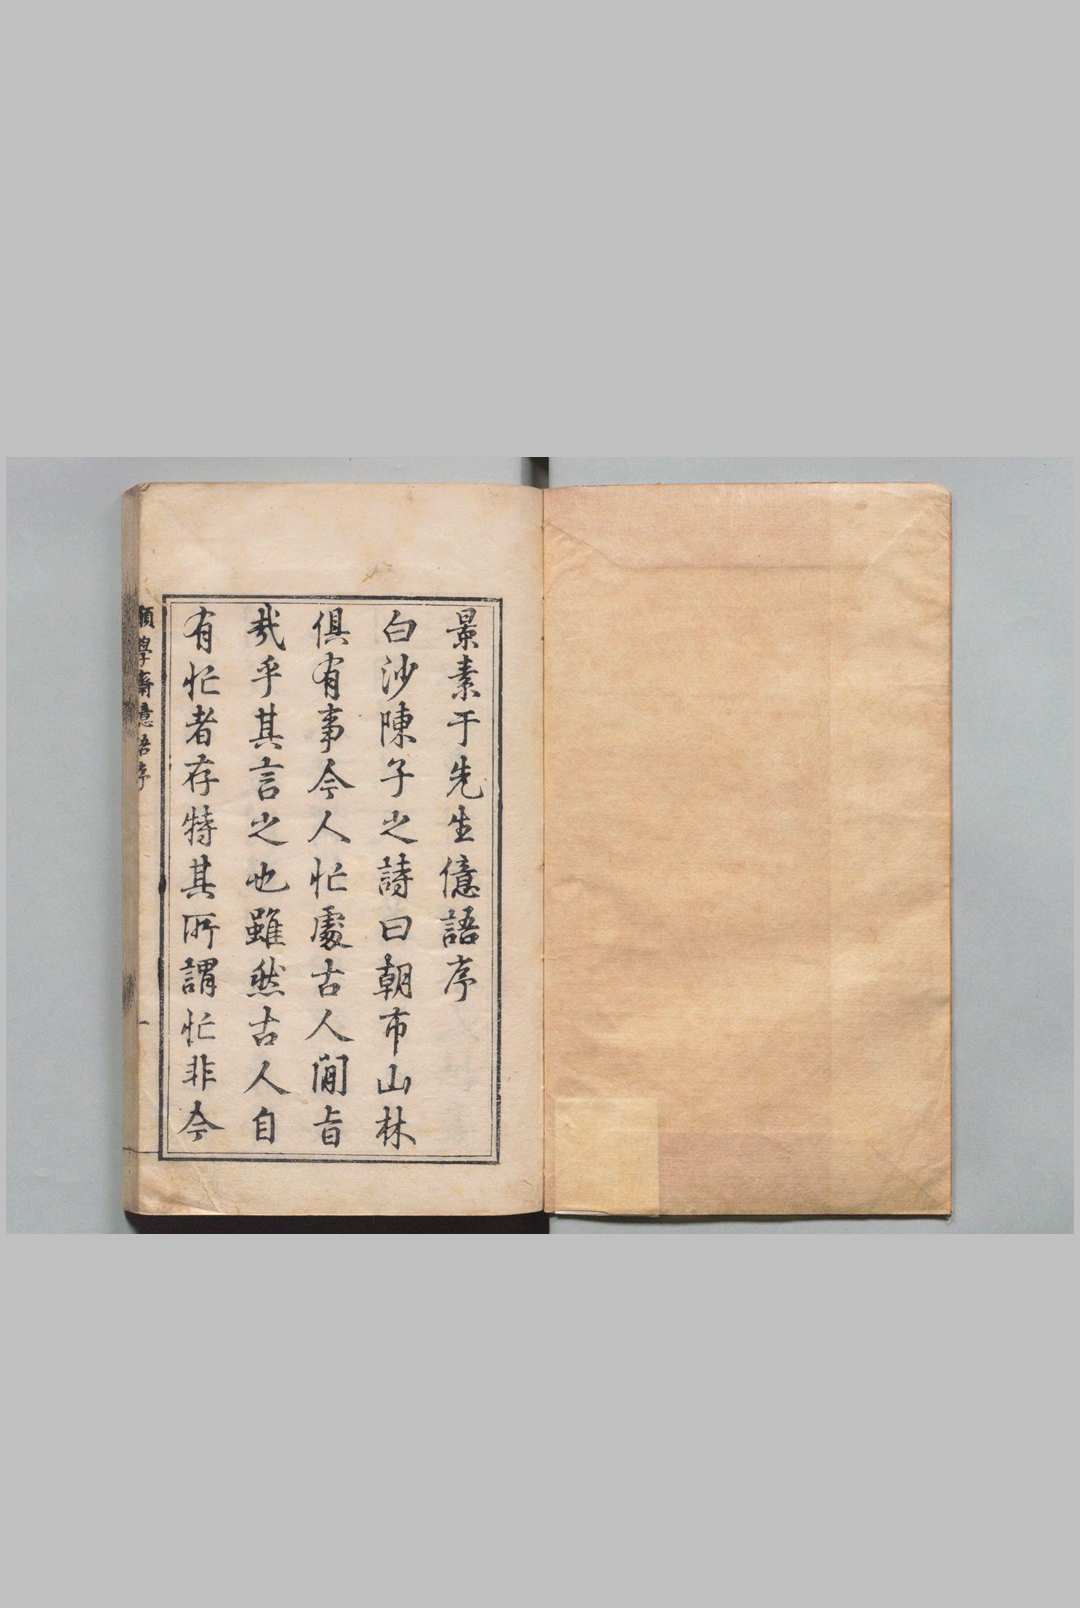 景素于先生億語序
白沙陳子之詩曰朝市山林
俱有事今人忙處古人閒旨
哉乎其言之也雖然古人自
有忙者存特其所謂忙非今
願學齋億語序
一